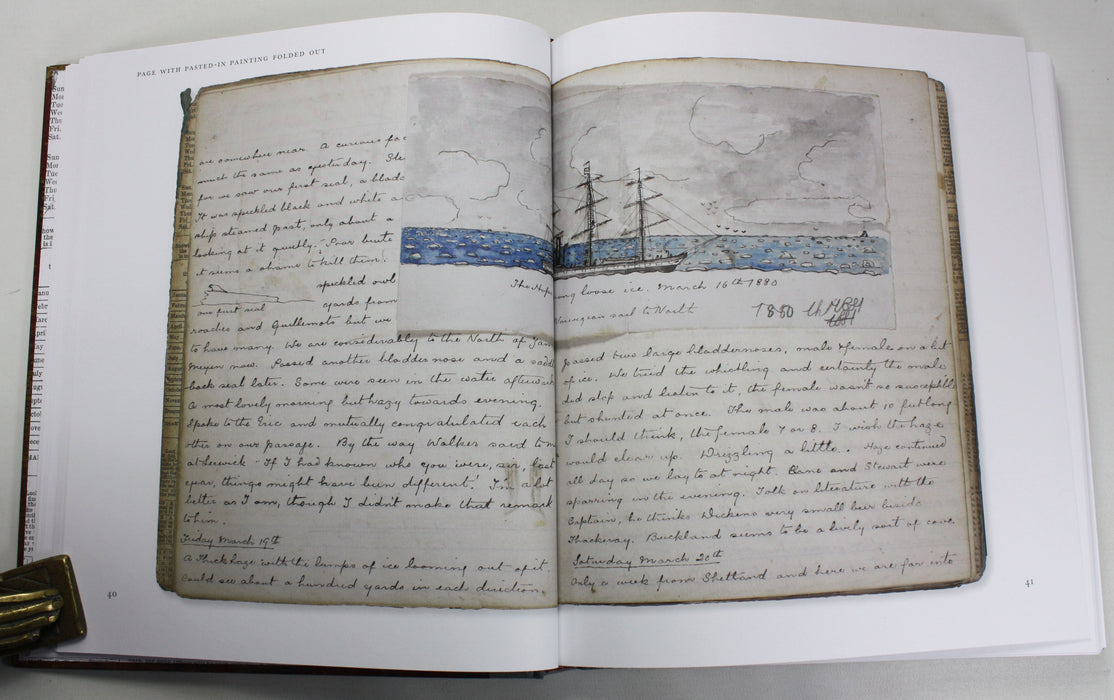 PAGE WITH PASTED-IN PAINTING FOLDED OUT
are somewhere near. A curious fac
much the same as yesterday.
for we saw our first seal, a bladd
It was speckled black and white a
ship steamed past, only about a
looking at it quietly. Poor brute
it seems a shame to kill them.
speckled owl
our first seal
yards from
roaches and Guillemots but we
to have many. We are considerably to the North of Jan
Meyen now. Passed another bladdernose and a saddle
back seal later. Some were seen in the water afterwards
A most lovely morning but hazy towards evening,
Spoke to the Eric and mutually congratulated each
other on our passage. By the way Walker said to m
at Lerwick "If I had known who you were, sir, last
year, things might have been different." I'm a lot
better as I am, though I didn't make that remark
to him.
Friday March 19th
A Thick haze with the lumps of ice looming out of it.
Could see about a hundred yards in each direction.
40
The Hope
ong loose ice. March 16th 1880
Norwegian sail to North
1880
Passed two large bladdernoses, male & female on a bit
of ice. We tried the whistling and certainly the male
did stop and listen to it, the female wasn't so susceptible
but shunted at once. The male was about 10 feet long
I should think, the female 7 or 8. I wish the haze
would clear up. Drizzling a little. Haze continued
all day so we lay to at night. Cane and Stewart were
sparring in the evening. Talk on literature with the
Captain, he thinks Dickens very small beer beside
Thackeray. Buckland seems to be a lively sort of cove.
Saturday March 20th
Only a week from Shetland and here we are far into
41